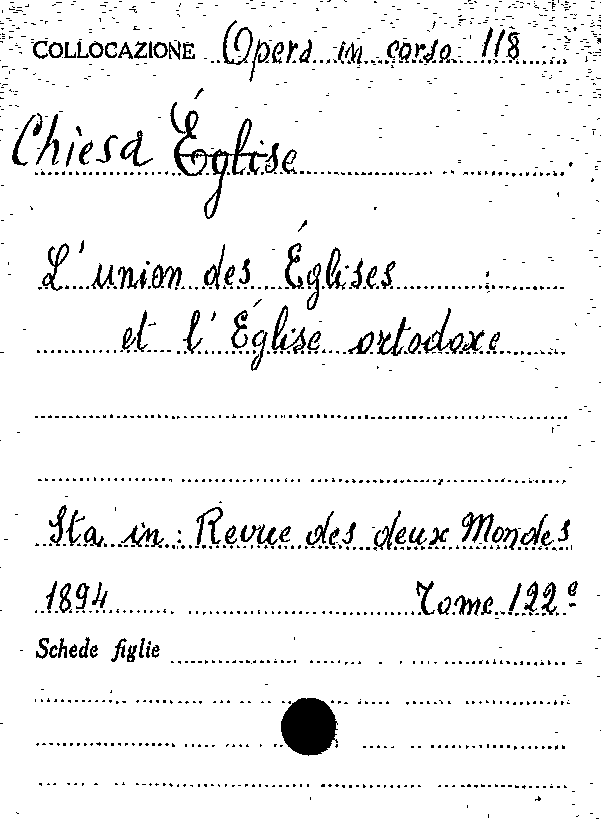 COLLOCAZIONE Opera in corso 118
Chiesa Église
L'union des Églises
et l'Église ortodoxe
Sta in: Revue des deux Mondes
1894 Tome 122e
Schede figlie